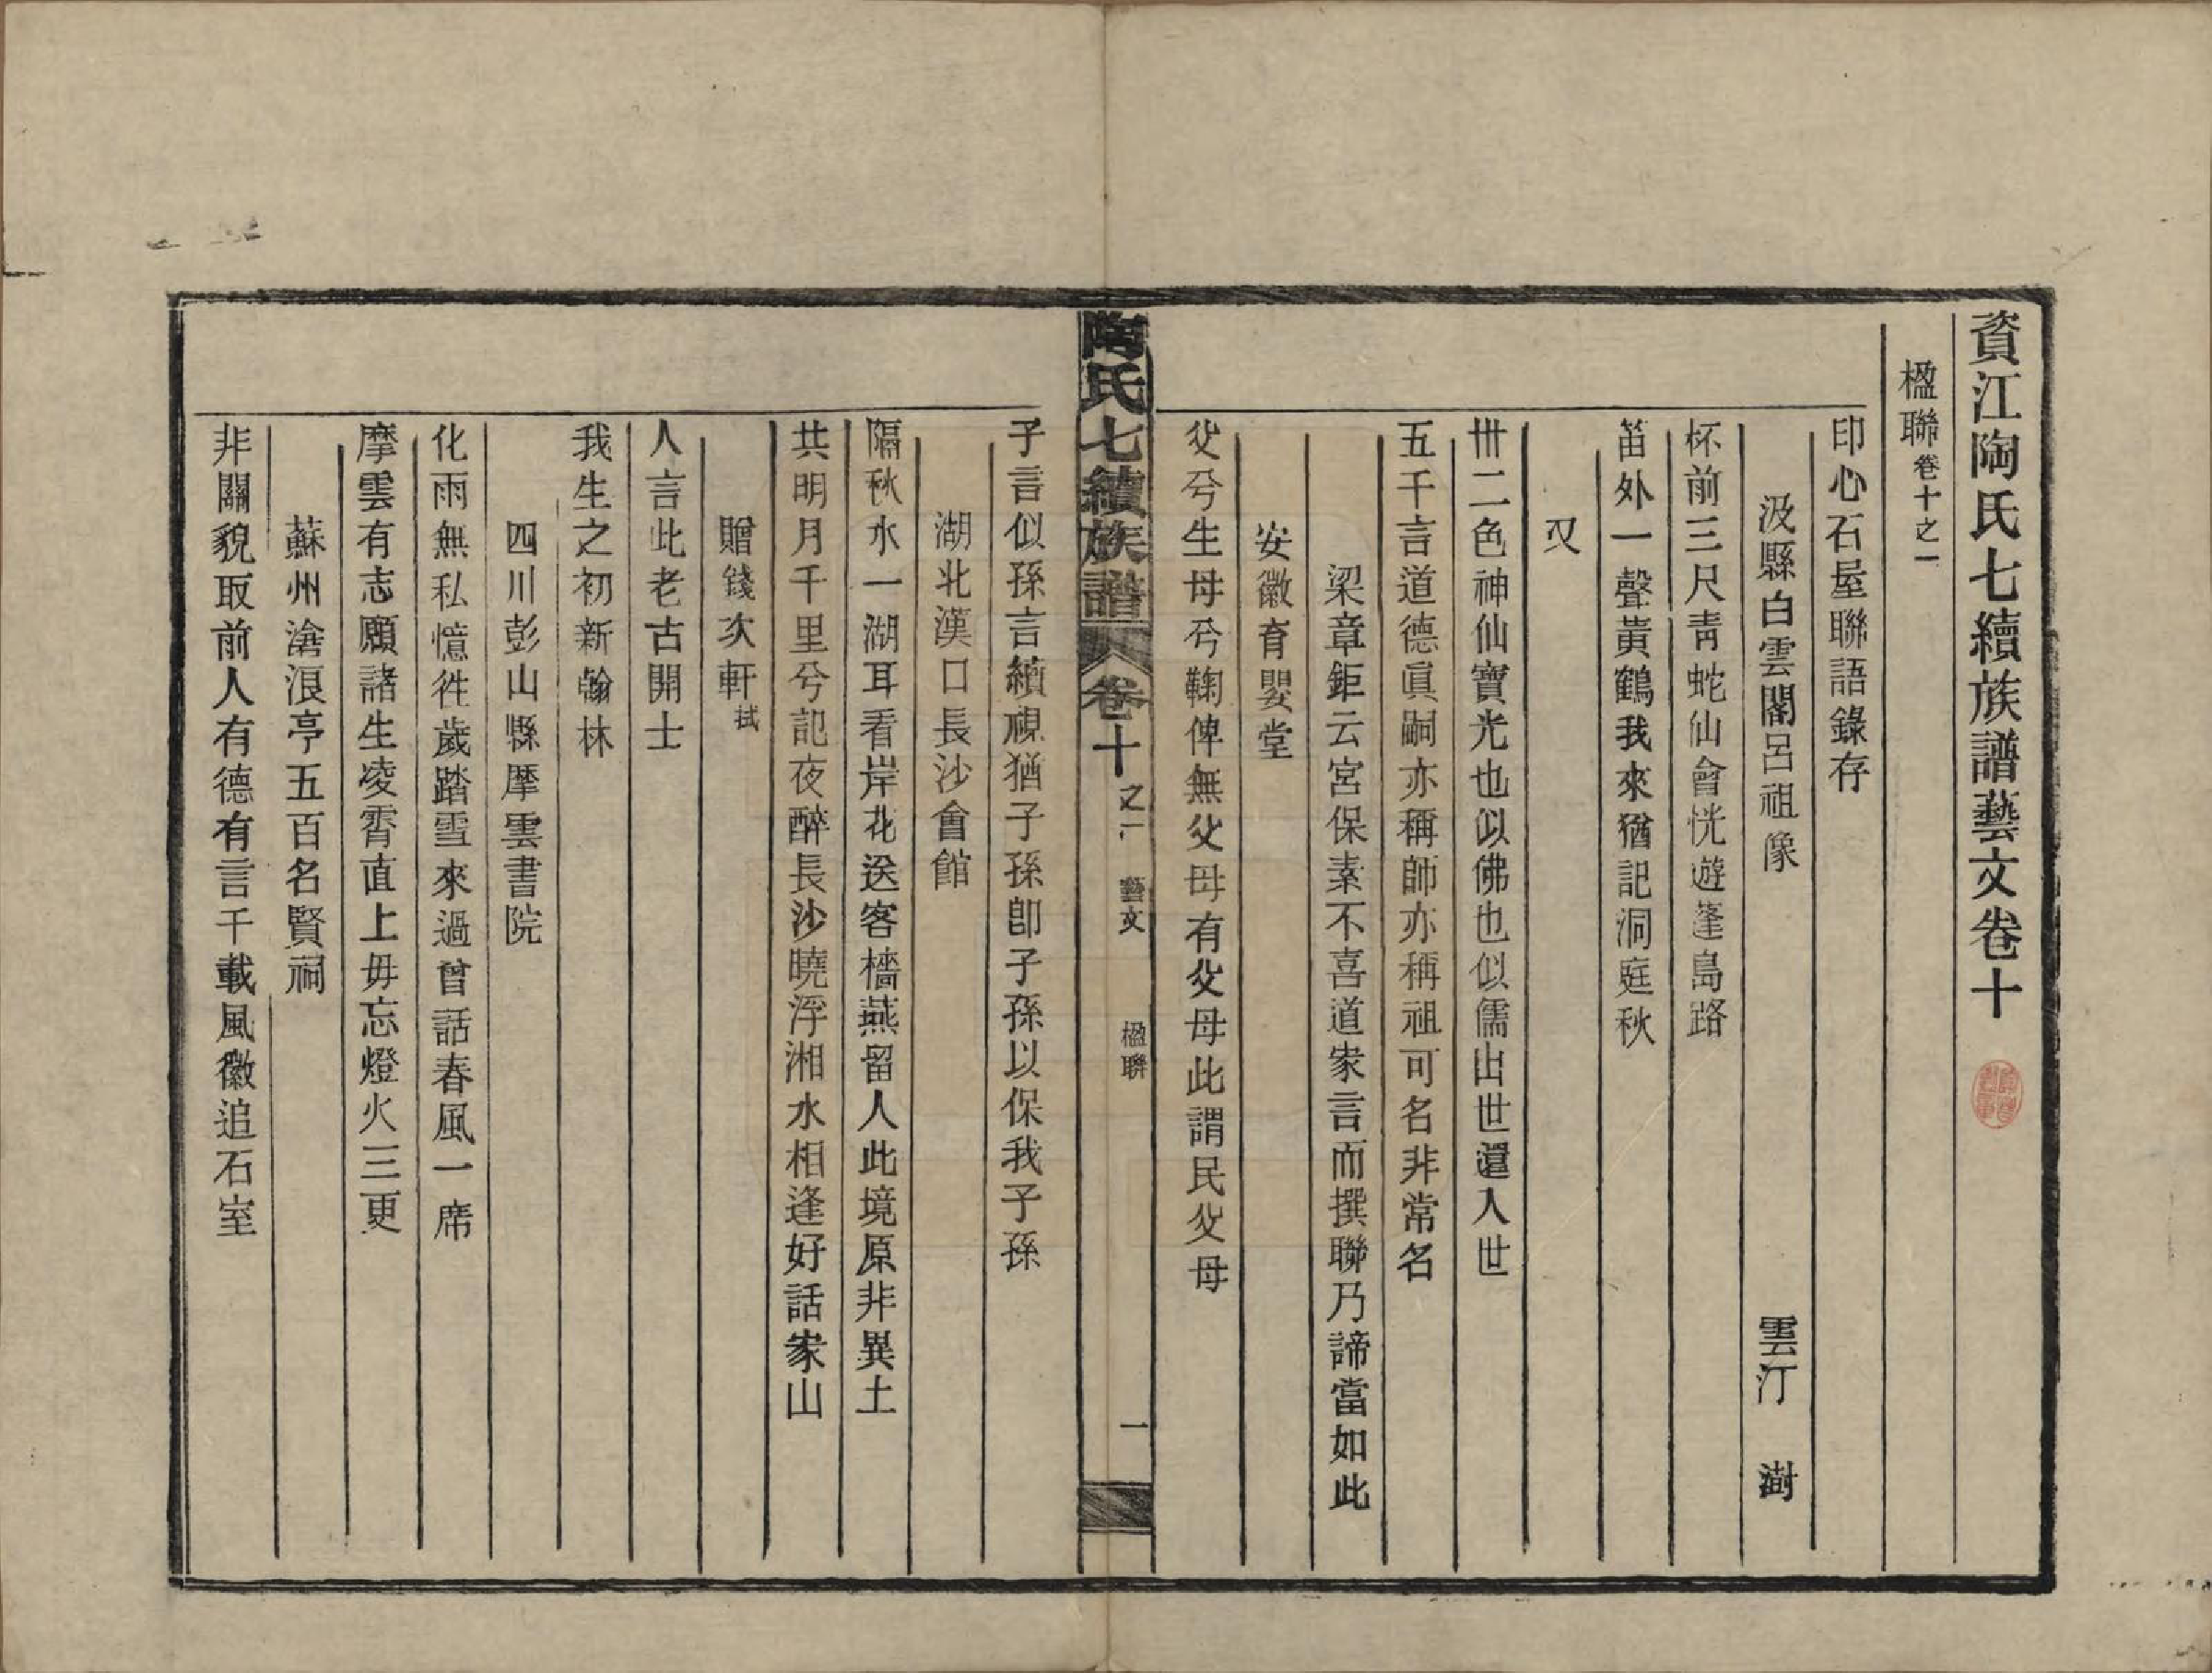 資江陶氏七續族譜藝文卷十
楹聯卷十之一
印心石屋聯語錄存
汲縣白雲閣呂祖像　雲汀　澍
杯前三尺靑蛇仙會恍遊蓬島路
笛外一聲黃鶴我來猶記洞庭秋
又
卅二色神仙寶光也似佛也似儒出世還入世
五千言道德眞嗣亦稱師亦稱祖可名非常名
梁章鉅云宮保素不喜道家言而撰聯乃諦當如此
安徽育嬰堂
父兮生母兮鞠俾無父母有父母此謂民父母
陶氏七續族譜　卷十　之一　藝文　楹聯　一
子言似孫言續視猶子孫卽子孫以保我子孫
湖北漢口長沙會館
隔秋水一湖耳看岸花送客檣燕留人此境原非異土
共明月千里兮記夜醉長沙曉浮湘水相逢好話家山
贈錢次軒栻
人言此老古開士
我生之初新翰林
四川彭山縣摩雲書院
化雨無私憶往歲踏雪來過曾話春風一席
摩雲有志願諸生凌霄直上毋忘燈火三更
蘇州滄浪亭五百名賢祠
非關貌取前人有德有言千載風徽追石室